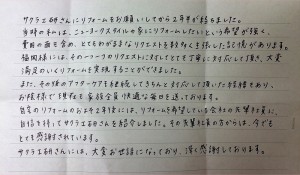 サクラエ研さんにリフォームをお願いしてから2年半が経ちました。
当時の私は、ニューヨークスタイルの家にリフォームしたいという希望が強く、
費用の面も含め、とてもわがままなリクエストを数々なき様にした記憶があります。
福岡様には、その一つ一つのリクエストに対してとても丁寧に対応して頂き、大変
満足のいくリフォームを実現することができました。
また、その後のアフターケアも継続してきちんと対応して頂いた経緯もあり、
お陰様で現在も家族全員快適な毎日を送っております。
自宅のリフォームのおよそ2年後には、リフォームを希望している会社の先輩社員に、
自信を持ってサクラエ研さんを紹介しました。その先輩社員の方からは、今でも
とても感謝されています。
サクラエ研さんには、大変お世話になっており、深く感謝しております。